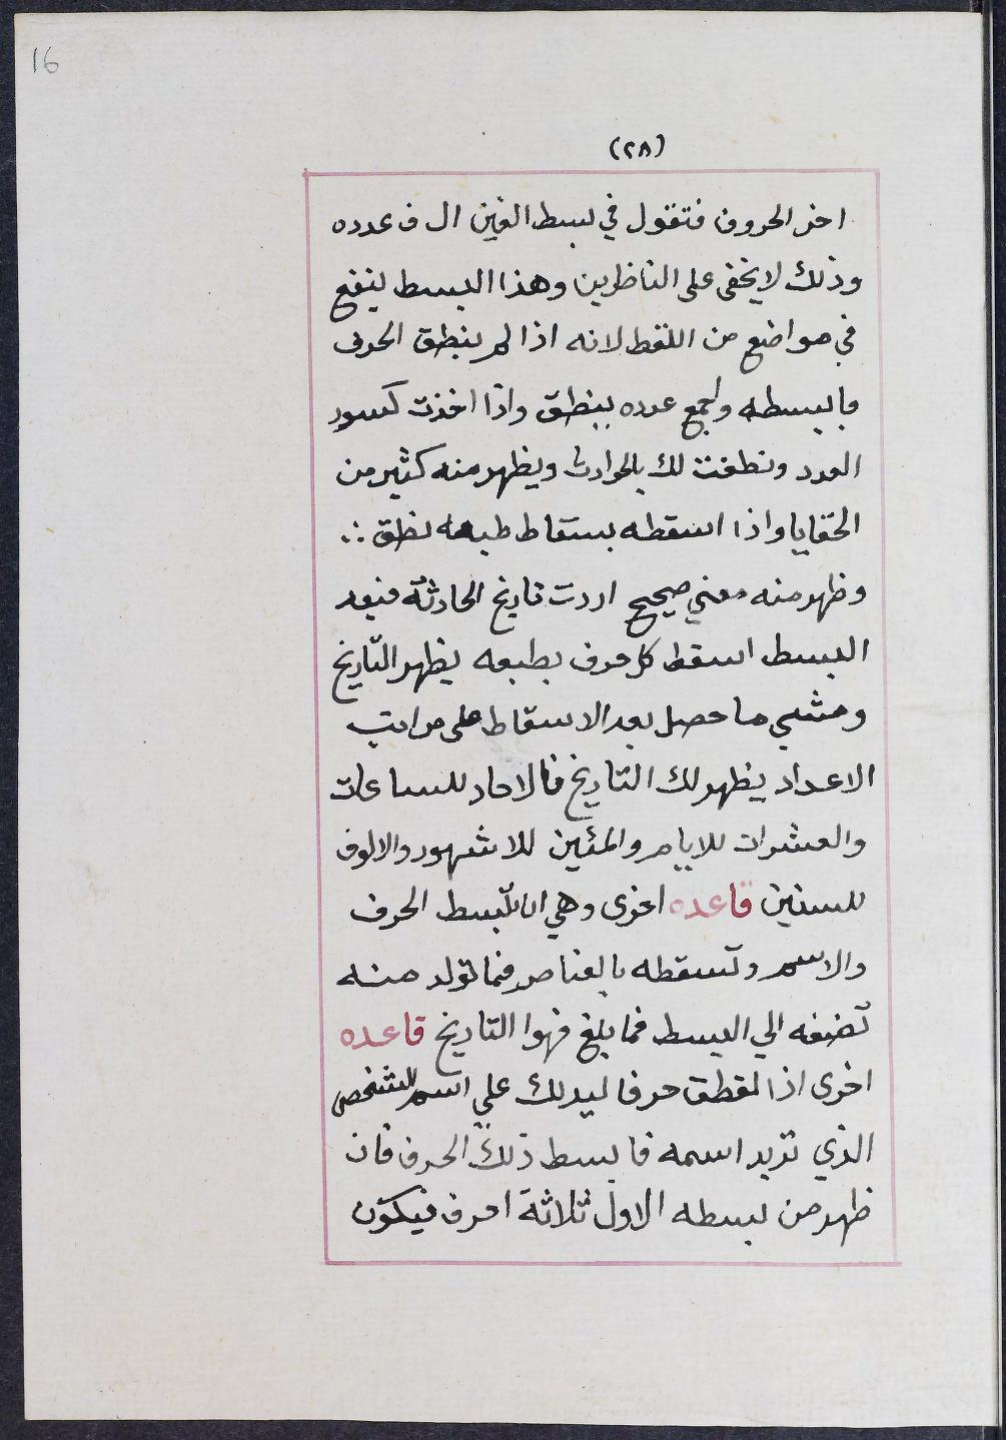 16
(٢٨)
اخر الحروف فتقول في بسط الغين ال ف عدده
وذلك لا يخفى على الناظرين وهذا البسط ينفع
في مواضع من اللقط لانه اذا لم ينطق الحرف
فابسطه واجمع عدده ينطق واذا اخذت كسور
العدد ونطقت لك بالحوادث ويظهر منه كثير من
الخفايا واذا اسقطه بسقاط طبعه نطق ∴
وظهر منه معني صحيح اردت تاريخ الحادثة فبعد
البسط اسقط كل حرف بطبعه يظهر التاريخ
ومشي ما حصل بعد الاسقاط على مراتب
الاعداد يظهر لك التاريخ فالاحاد للساعات
والعشرات للايام والمئين للاشهور والالوف
للسنين قاعده اخرى وهي ان تبسط الحرف
والاسم وتسقطه بالعناصر فما تولد منه
تضفه الي البسط فما بلغ فهوا التاريخ قاعده
اخرى اذا لقطت حرفا ليدلك علي اسم الشخص
الذي تريد اسمه فابسط ذلك الحرف فان
ظهر من بسطه الاول ثلاثة احرف فيكون